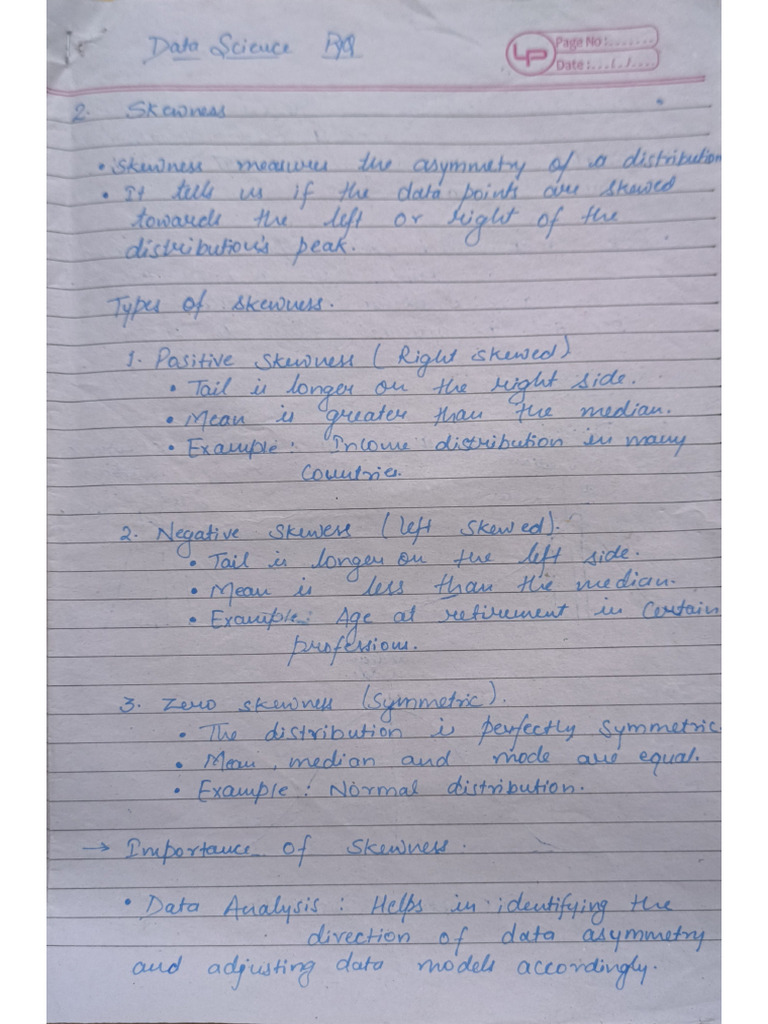 Data Science
LP
Page No :.......
Date : ... / ... / ....
2. Skewness
• Skewness measures the asymmetry of a distribution
• It tells us if the data points are skewed
towards the left or right of the
distribution's peak.
Types of skewness.
1. Positive skewness ( Right skewed)
• Tail is longer on the right side.
• Mean is greater than the median.
• Example : Income distribution in many
Countries.
2. Negative skewess (left skewed).
• Tail is longer on the left side.
• Mean is less than the median.
• Example : Age at retirement in certain
professions.
3. Zero skewness (Symmetric).
• The distribution is perfectly symmetric.
• Mean, median and mode are equal.
• Example : Normal distribution.
→ Importance of skewness.
• Data Analysis : Helps in identifying the
direction of data asymmetry
and adjusting data models accordingly.